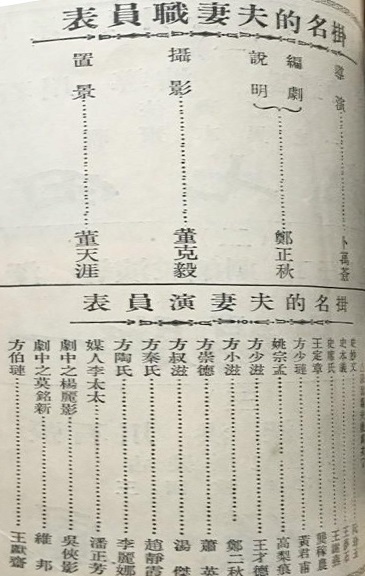 掛名的夫妻職員表
導演 卜萬蒼
編劇 說明 鄭正秋
攝影 董克毅
置景 董天涯
掛名的夫妻演員表
史妙文
史本義 王
史席氏 王謝燕
王定章 龔稼農
方少璉 黃君甫
姚宗孟 高梨痕
方少滋 王才德
方小滋 鄭二秋
方崇德 蕭英
方叔滋 湯傑
方秦氏 趙靜霞
方陶氏 李麗娜
媒人李太太 潘正芳
劇中之楊麗影 吳俠影
劇中之莫銘新 維邦
方伯璉 王獻齋